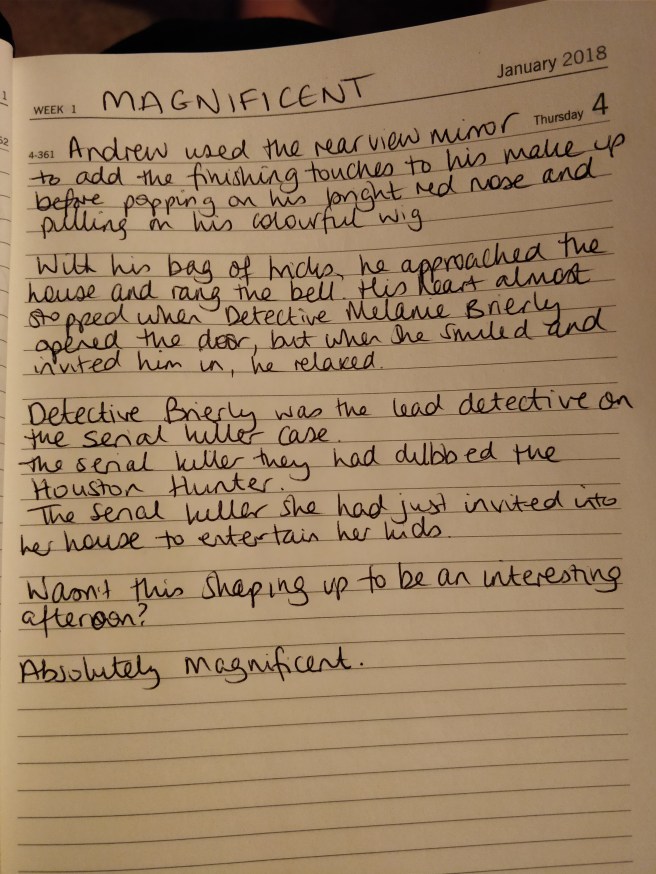 January 2018
WEEK 1 MAGNIFICENT
Thursday 4
4-361 Andrew used the rear view mirror
to add the finishing touches to his make up
before popping on his bright red nose and
pulling on his colourful wig
With his bag of tricks, he approached the
house and rang the bell. His heart almost
stopped when Detective Melanie Brierly
opened the door, but when she smiled and
invited him in, he relaxed.
Detective Brierly was the lead detective on
the serial killer case.
The serial killer they had dubbed the
Houston Hunter.
The serial killer she had just invited into
her house to entertain her kids.
Wasn't this shaping up to be an interesting
afternoon?
Absolutely magnificent.
1
52